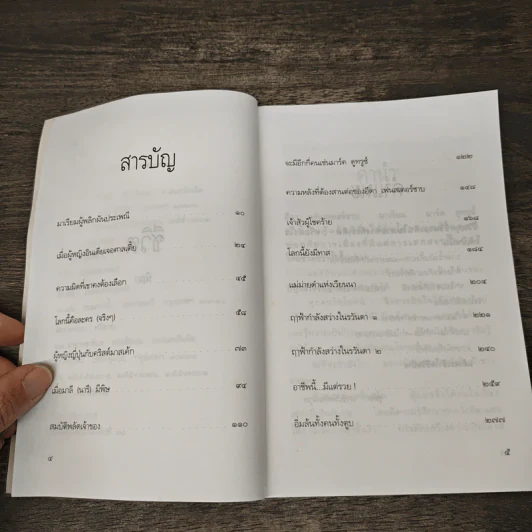 สารบัญ
มาเรียมผู้พลิกผันประเพณี ๑๐
เมื่อผู้หญิงอินเดียเจอตาลเตี้ย ๒๔
ความผิดที่เขาคงต้องเลือก ๔๕
โลกนี้คือละคร (จริงๆ) ๕๘
ผู้หญิงญี่ปุ่นกับคริสต์มาสเค้ก ๗๓
เมื่อมาลี (นารี) มีพิษ ๙๔
สมบัติพลัดเจ้าของ ๑๑๐
๔
จะมีอีกกี่คนเช่นมาร์ค ดูทรูซ์ ๑๒๒
ความหลังที่ต้องสานต่อของอีดา เฟนเสตอร์ชาบ ๑๔๘
เจ้าสัวผู้โชคร้าย ๑๖๘
โลกนี้ยังมีทาส ๑๘๔
แม่ม่ายดำแห่งเวียนนา ๒๐๔
ฤาฟ้ากำลังสว่างในรวันดา ๑ ๒๒๑
ฤาฟ้ากำลังสว่างในรวันดา ๒ ๒๔๐
อาชีพนี้...มีแต่รวย ! ๒๕๙
อิ่มล้นทั้งคนทั้งตูบ ๒๗๗
๕